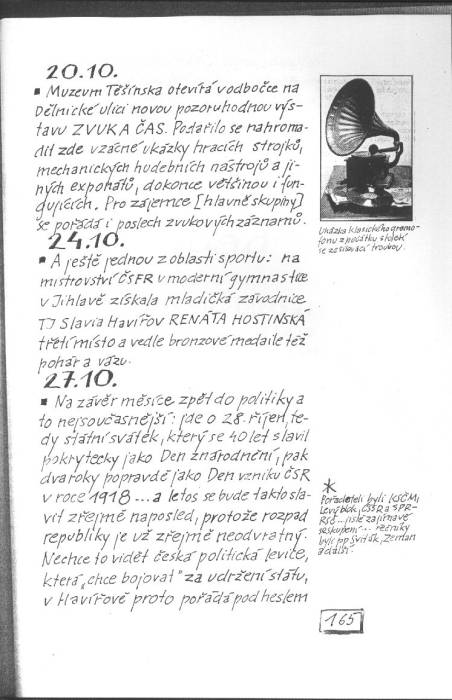 20.10.
▪ Muzeum Těšínska otevírá v odbočce na
Dělnické ulici novou pozoruhodnou výs-
tavu ZVUK A ČAS. Podařilo se nahroma-
dit zde vzácné ukázky hracích strojků,
mechanických hudebních nástrojů a ji-
ných exponátů, dokonce většinou i fun-
gujících. Pro zájemce [hlavně skupiny]
se pořádá i poslech zvukových záznamů.
Ukázka klasického gramo-
fonu z počátku století
se zesilovací troubou.
24.10.
▪ A ještě jednou z oblasti sportu: na
mistrovství ČSFR v moderní gymnastice
v Jihlavě získala mladičká závodnice
TJ Slavia Havířov RENÁTA HOSTINSKÁ
třetí místo a vedle bronzové medaile též
pohár a vázu.
27.10.
▪ Na závěr měsíce zpět do politiky a
to nejsoučasnější: jde o 28. říjen, te-
dy státní svátek, který se 40 let slavil
pokrytecky jako Den znárodnění, pak
dva roky popravdě jako Den vzniku ČSR
v roce 1918 ... a letos se bude takto sla-
vit zřejmě naposled, protože rozpad
republiky je už zřejmě neodvratný.
Nechce to vidět česká politická levice,
která „chce bojovat" za udržení státu,
v Havířově proto pořádá pod heslem
*
Pořadateli byli KSČM,
Levý blok, ČSSD a SPR-
RSČ... jistě zajímavé
seskupení... řečníky
byli pp Sviták, Zeman
a další.
165